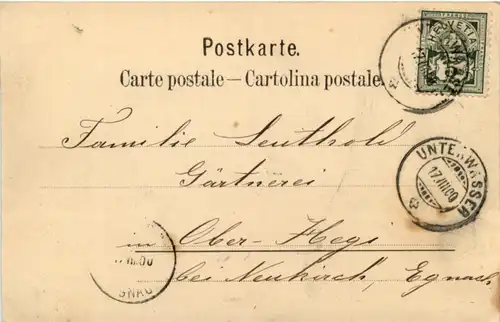 HELVETIA
Postkarte.
Carte postale — Cartolina postale.
Familie Leuthold
UNTERWASSER
17.VIII.00
Gärtnerei
in Ober-Hegi
bei Neukirch, Egnach